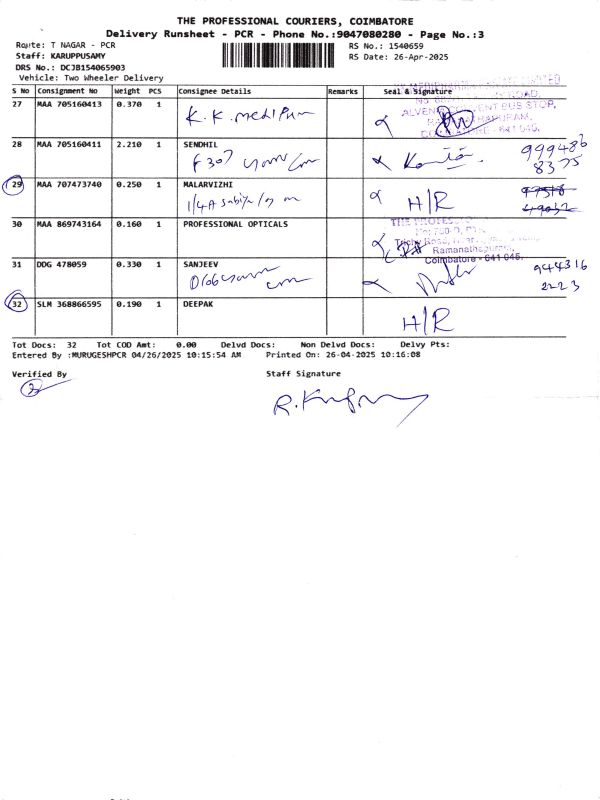 THE PROFESSIONAL COURIERS, COIMBATORE
Delivery Runsheet - PCR - Phone No.:9047080280 - Page No.:3
Route: T NAGAR - PCR
RS No.: 1540659
Staff: KARUPPUSAMY
RS Date: 26-Apr-2025
DRS No.: DCJB154065903
Vehicle: Two Wheeler Delivery
S No Consignment No Weight PCS Consignee Details Remarks Seal & Signature
27 MAA 705160413 0.370 1
K.K. medipum
BUS STOP,
28 MAA 705160411 2.210 1 SENDHIL
F 307
999486
8375
29 MAA 707473740 0.250 1 MALARVIZHI
1/4A
H/R
30 MAA 869743164 0.160 1 PROFESSIONAL OPTICALS
Ramanathapuram,
Coimbatore - 641 045.
31 DDG 478059 0.330 1 SANJEEV
944316
2223
32 SLM 368866595 0.190 1 DEEPAK
H/R
Tot Docs: 32 Tot COD Amt: 0.00 Delvd Docs: Non Delvd Docs: Delvy Pts:
Entered By :MURUGESHPCR 04/26/2025 10:15:54 AM Printed On: 26-04-2025 10:16:08
Verified By Staff Signature